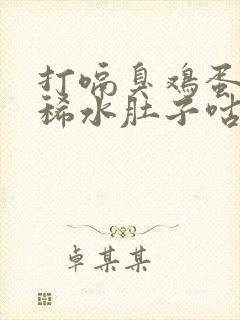 打嗝臭鸡蛋
稀水肚子咕
卓某某